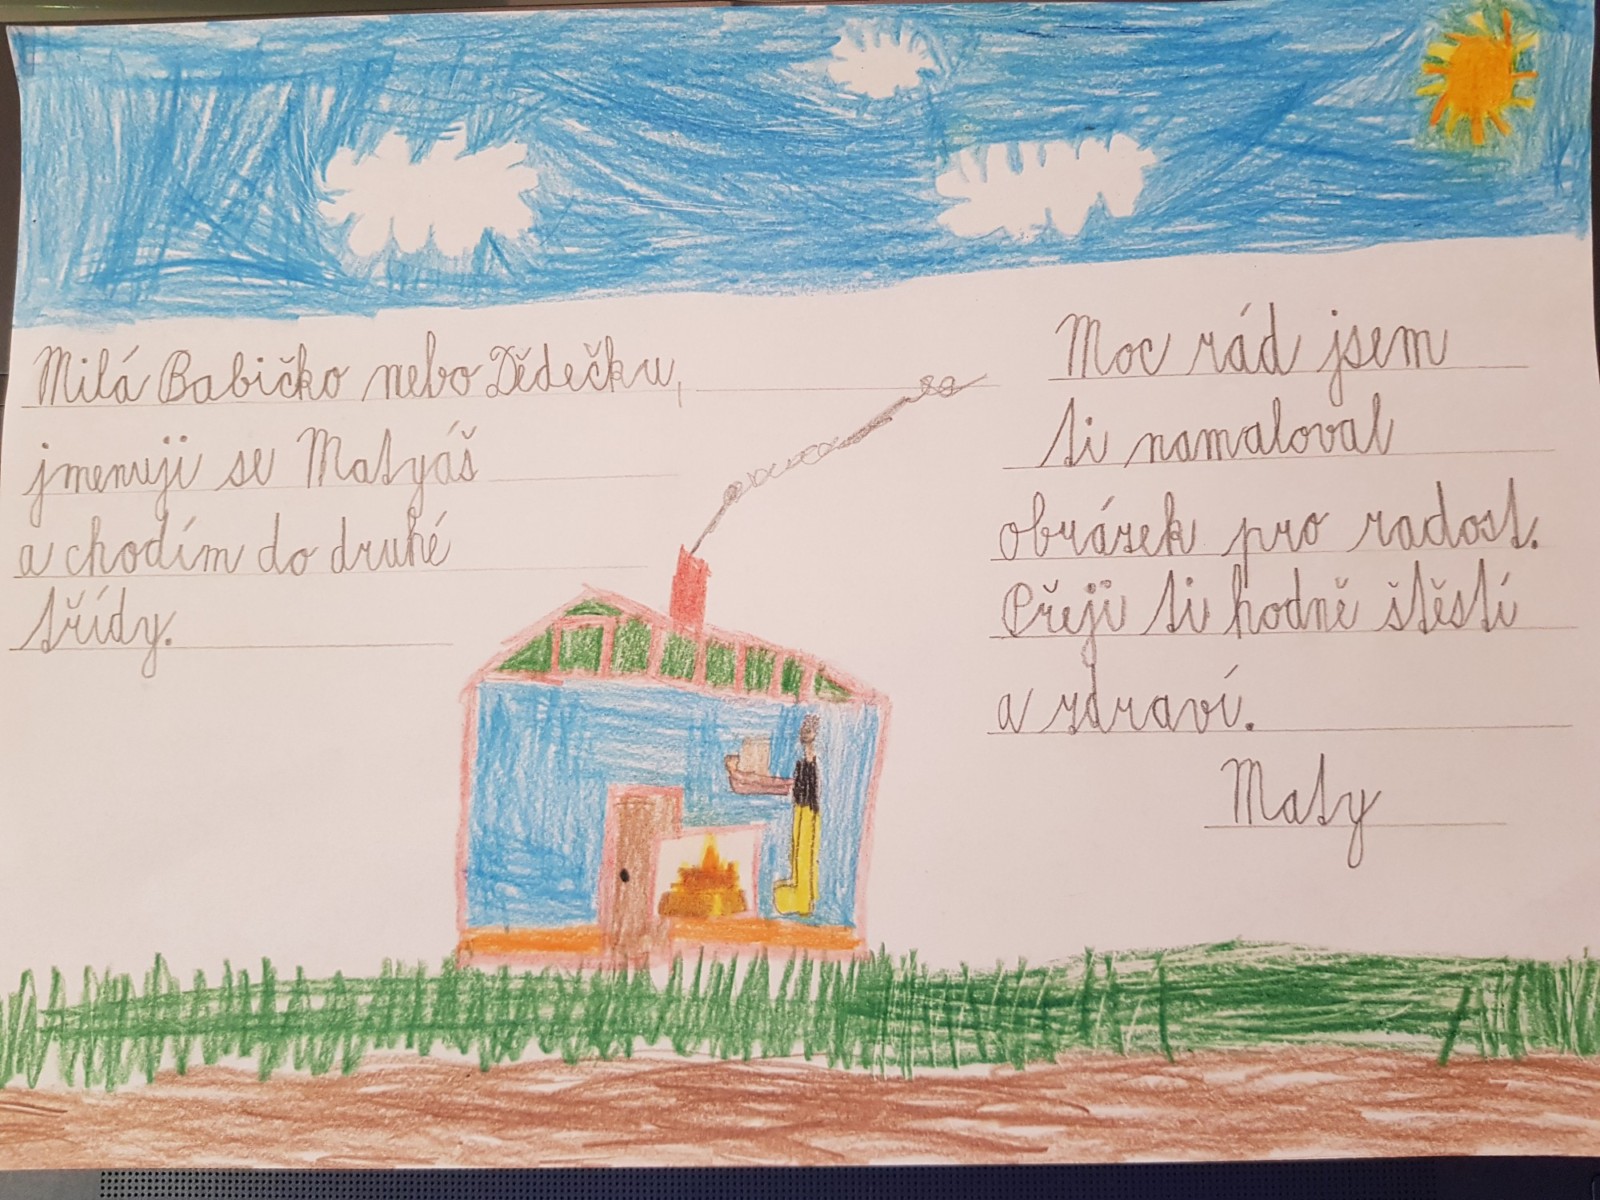 Milá Babičko nebo Dědečku,
jmenuji se Matyáš
a chodím do druhé
třídy.
Moc rád jsem
ti namaloval
obrázek pro radost.
Přeji ti hodně štěstí
a zdraví.
Maty